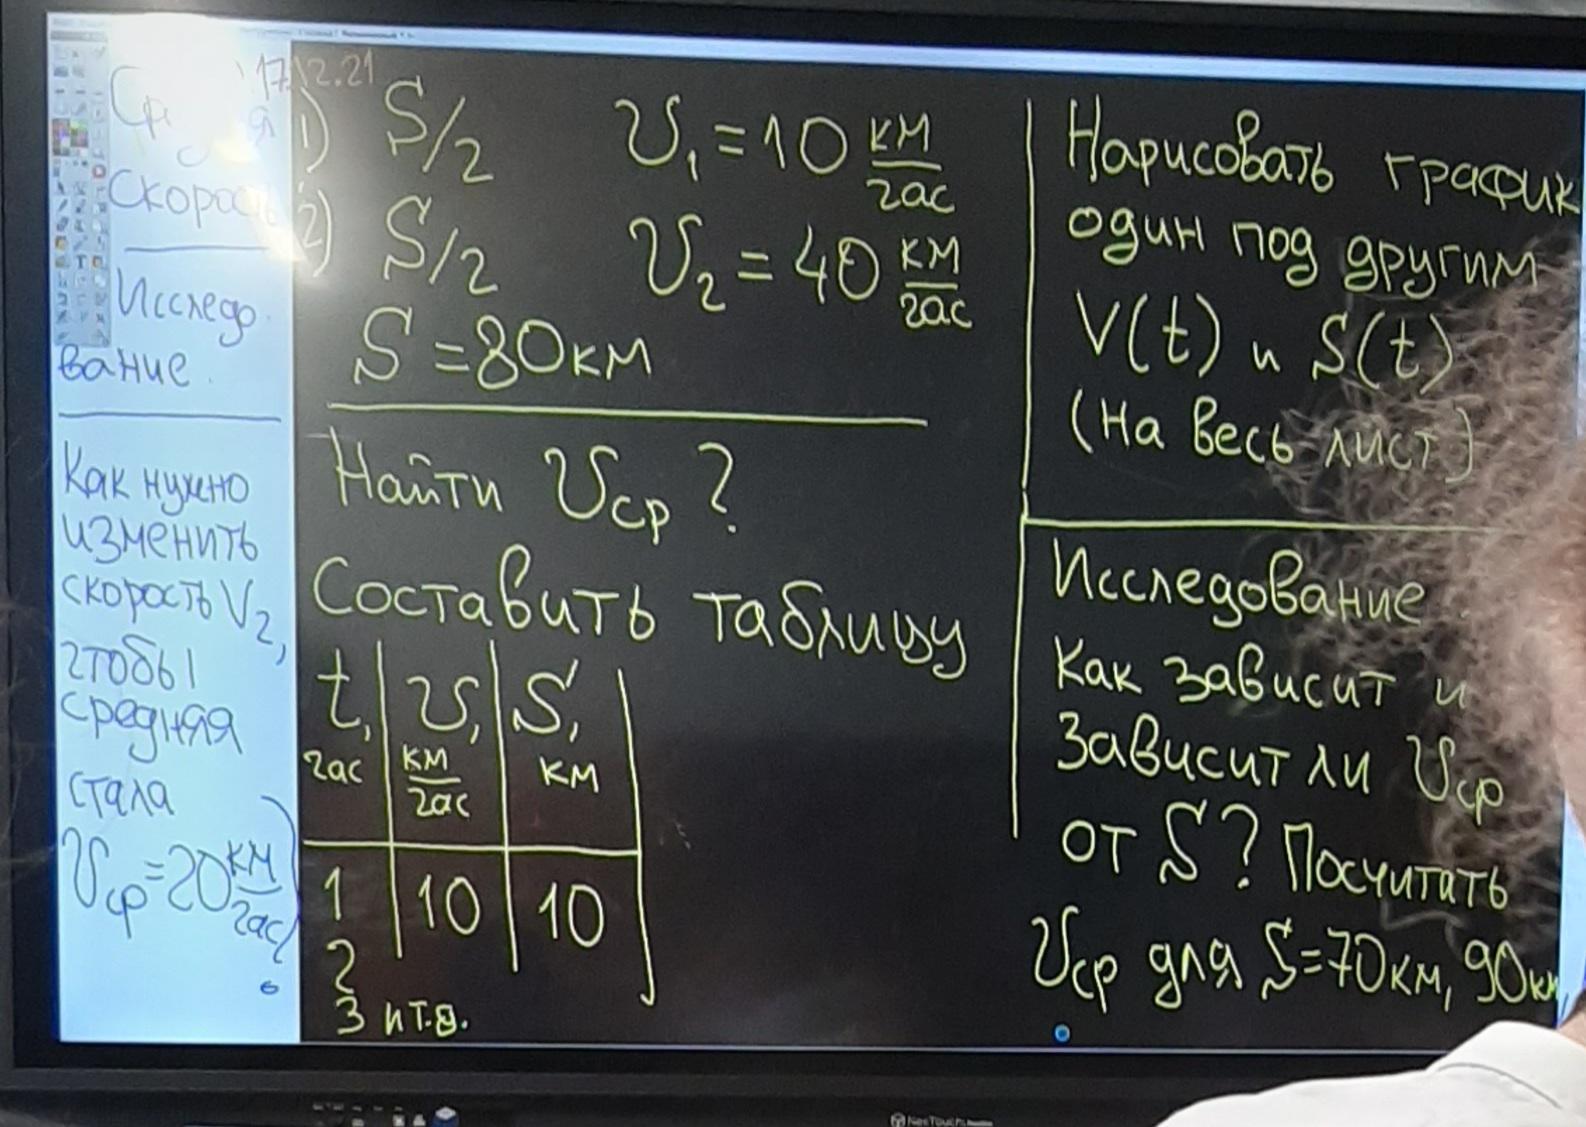 17.12.21
скорость
Исследо
вание.
Как нужно
изменить
скорость V₂,
чтобы
средняя
стала
υср=20 км/час
1) S/2 υ₁=10 км/час
2) S/2 υ₂=40 км/час
S=80км
Найти υср?
Составить таблицу
t, час υ, км/час S, км
1 10 10
2
3 и т.д.
Нарисовать график
один под другим
V(t) и S(t)
(на весь лист)
Исследование.
Как зависит и
зависит ли υср
от S? Посчитать
υср для S=70км, 90км,
NexTouch